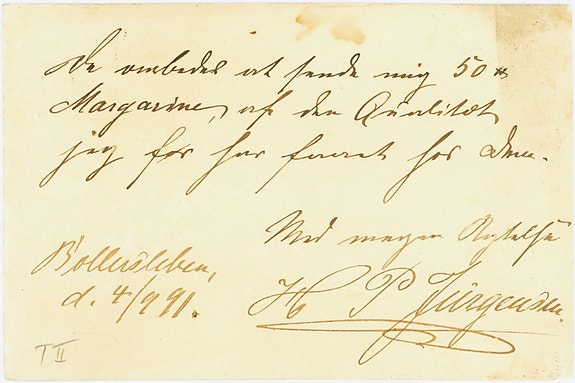 De ombedes at sende mig 50 ℔
Margarine, af den Qualität
jeg før har faaet hos Dem.
Med megen Agtelse
Bollersleben,
d. 4/9 91.
H P Jürgensen.
T II